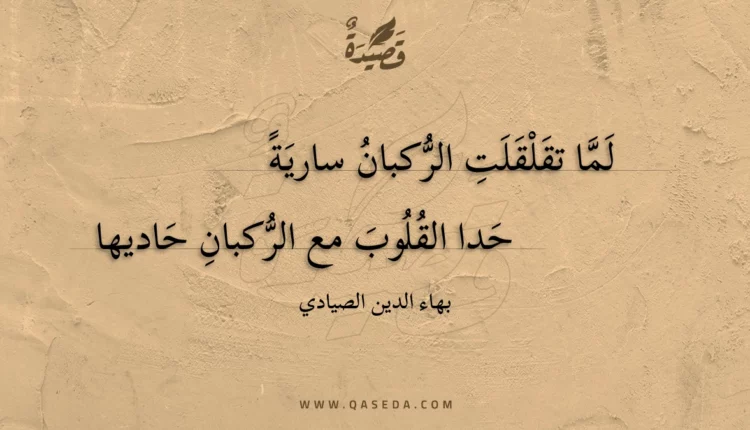 قَصِيْدَةٌ
لَمَّا تقَلْقَلَتِ الرُّكبانُ ساريَةً
حَدا القُلُوبَ مع الرُّكبانِ حَاديها
بهاء الدين الصيادي
WWW.QASEDA.COM